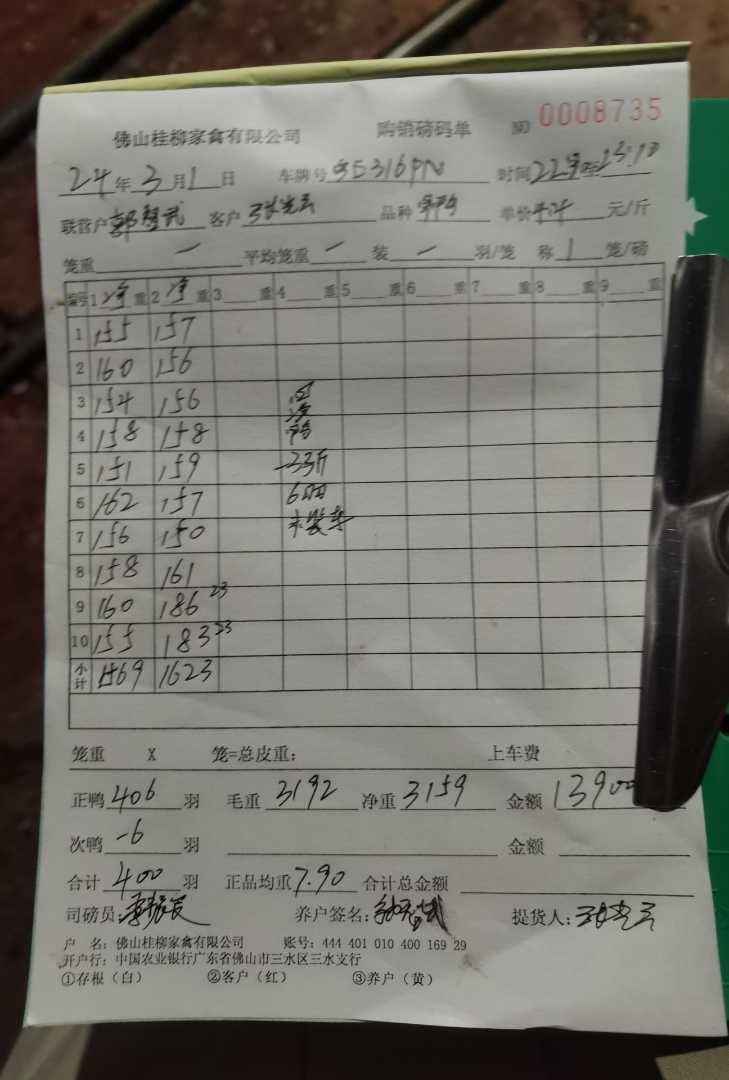 佛山桂柳家禽有限公司 购销磅码单 NO 0008735
24年3月1日 车牌号 粤E316PN 时间
联营户 客户 品种 单价 4.4 元/斤
笼重 一 平均笼重 一 装 一 羽/笼 称 1 笼/磅
编号 1 净 重 2 净 重 3 重 4 重 5 重 6 重 7 重 8 重 9 重
1 155 157
2 160 156
3 154 156
4 158 158
5 151 159 -33斤
6 162 157 6only
7 156 150 未装车
8 158 161
9 160 186 23
10 155 183 23
小计 1569 1623
笼重 X 笼=总皮重： 上车费
正鸭 406 羽 毛重 3192 净重 3159 金额 13900
次鸭 -6 羽 金额
合计 400 羽 正品均重 7.90 合计总金额
司磅员： 养户签名： 提货人：
户 名：佛山桂柳家禽有限公司 账号：444 401 010 400 169 29
开户行：中国农业银行广东省佛山市三水区三水支行
①存根（白） ②客户（红） ③养户（黄）